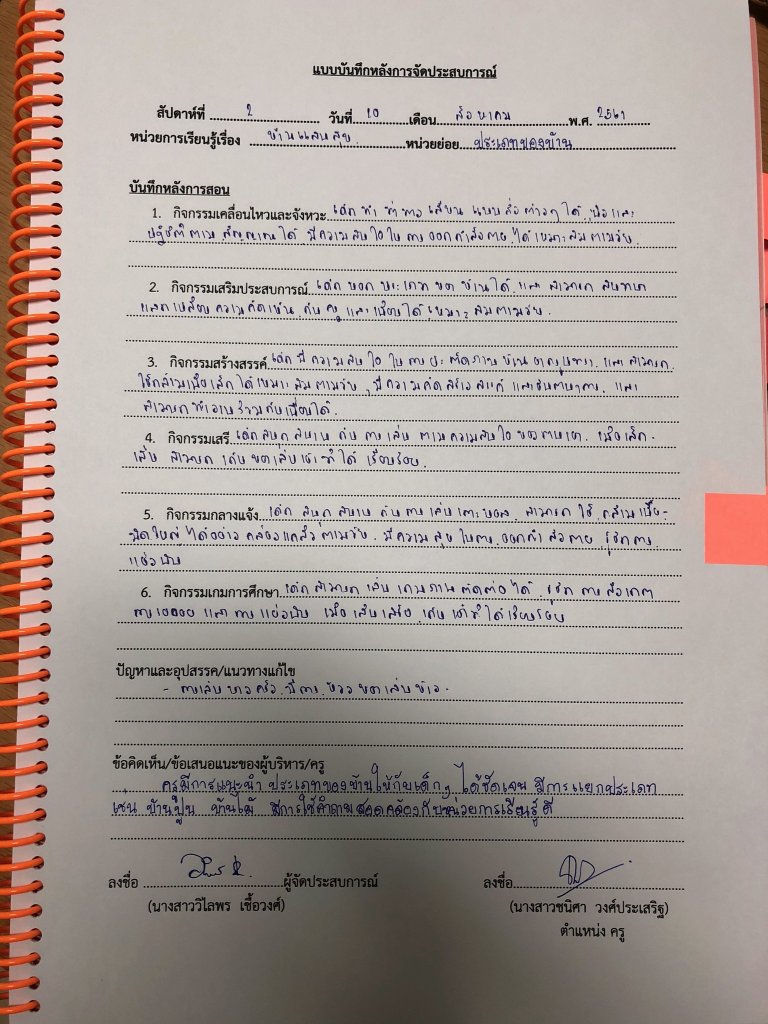 แบบบันทึกหลังการจัดประสบการณ์
สัปดาห์ที่ 2 วันที่ 10 เดือน สิงหาคม พ.ศ. 2561
หน่วยการเรียนรู้เรื่อง บ้านแสนสุข หน่วยย่อย ประเภทของบ้าน
บันทึกหลังการสอน
1. กิจกรรมเคลื่อนไหวและจังหวะ เด็กทำท่าทางเลียนแบบสิ่งต่างๆ ได้ และ
ปฏิบัติตามสัญญาณได้ มีความสนใจในการออกกำลังกาย ได้เหมาะสมตามวัย
2. กิจกรรมเสริมประสบการณ์ เด็กบอกประเภทของบ้านได้ และสามารถสนทนา
แลกเปลี่ยนความคิดเห็นกับครูและเพื่อนได้เหมาะสมตามวัย
3. กิจกรรมสร้างสรรค์ เด็กมีความสนใจในการฉีกตัดภาพบ้าน และสามารถ
ใช้กล้ามเนื้อเล็กได้เหมาะสมตามวัย มีความคิดสร้างสรรค์ และจินตนาการ และ
สามารถทำงานร่วมกับเพื่อนได้
4. กิจกรรมเสรี เด็กสนุกสนานกับการเล่นตามความสนใจของตนเอง เมื่อเลิก
เล่นสามารถเก็บของเล่นเข้าที่ได้เรียบร้อย
5. กิจกรรมกลางแจ้ง เด็กสนุกสนานกับการเล่น สามารถใช้กล้ามเนื้อ
มัดใหญ่ได้อย่างคล่องแคล่วตามวัย มีความสุขในการออกกำลังกาย รู้จักการ
แบ่งปัน
6. กิจกรรมเกมการศึกษา เด็กสามารถเล่นเกมภาพตัดต่อได้ รู้จักการสังเกต
การรอคอย และการแบ่งปัน เมื่อเล่นเสร็จเก็บเข้าที่ได้เรียบร้อย
ปัญหาและอุปสรรค/แนวทางแก้ไข
- การเล่นบางครั้งมีการของเล่น
ข้อคิดเห็น/ข้อเสนอแนะของผู้บริหาร/ครู
ครูมีการแนะนำประเภทของบ้านให้กับเด็กๆ ได้ชัดเจน มีการแยกประเภท
เช่น บ้านปูน บ้านไม้ มีการใช้คำถามสอดคล้องกับหน่วยการเรียนรู้ดี
ลงชื่อ ผู้จัดประสบการณ์ ลงชื่อ
(นางสาววิไลพร เชื้อวงศ์) (นางสาวชนิศา วงศ์ประเสริฐ)
ตำแหน่ง ครู